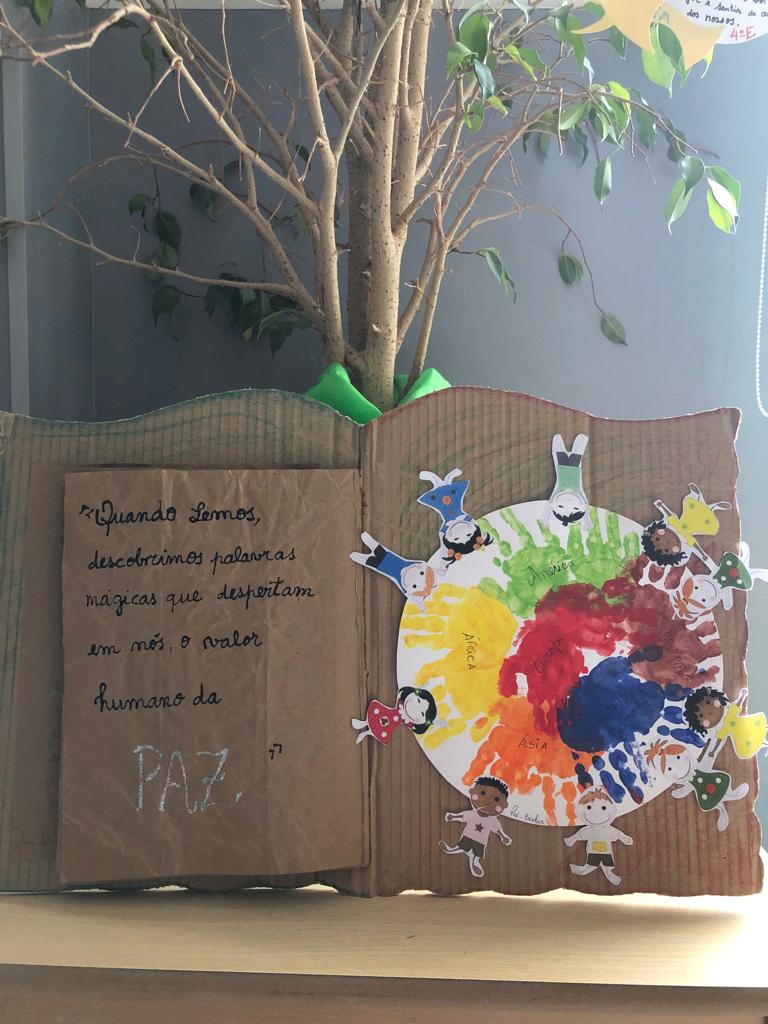 dos nossos.
4ºE
"Quando Lemos,
descobrimos palavras
mágicas que despertam
em nós, o valor
humano da
PAZ."
América
África
Europa
Ásia
Pré-Escolar